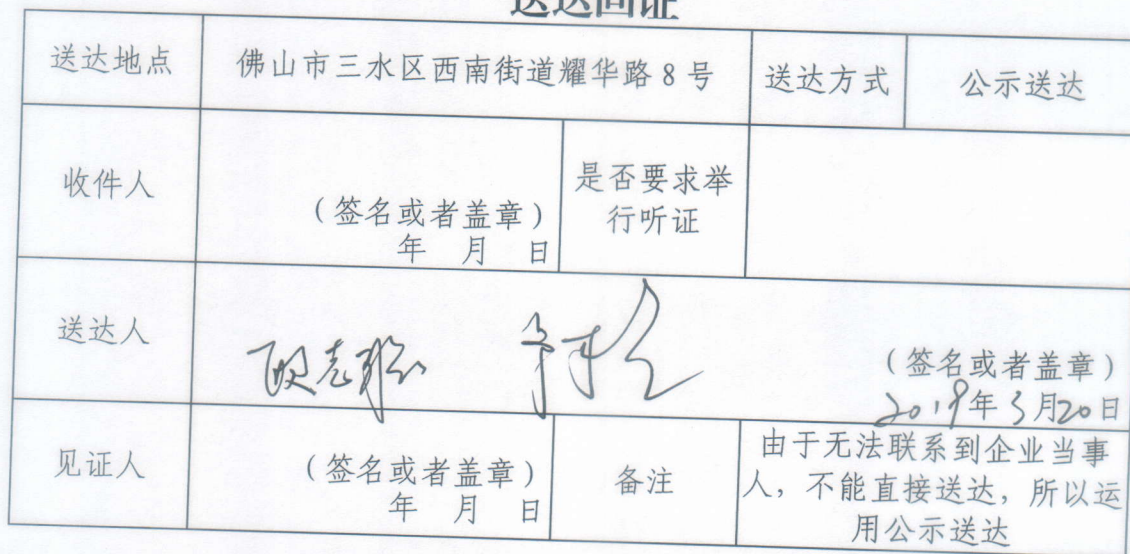 送达回证
送达地点 佛山市三水区西南街道耀华路8号 送达方式 公示送达
收件人
(签名或者盖章)
年 月 日
是否要求举
行听证
送达人
(签名或者盖章)
2019年3月20日
见证人
(签名或者盖章)
年 月 日
备注
由于无法联系到企业当事
人,不能直接送达,所以运
用公示送达